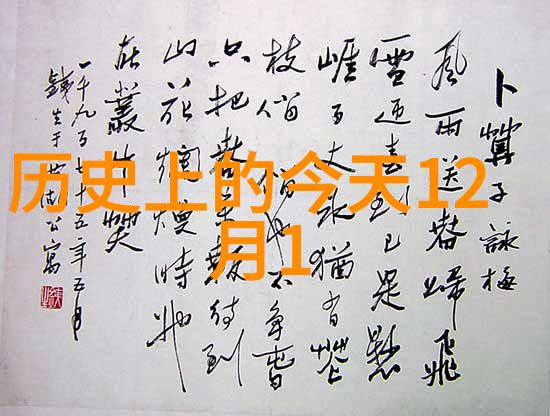 历史上的今天12
月1
卜算子詠梅
風雨送春歸飛
雪迎春到已是懸
崖百丈冰猶有花
枝俏俏也不争春
只把春来報待到
山花爛熳時她
在叢中笑
一千九百七十五年五月
公寓